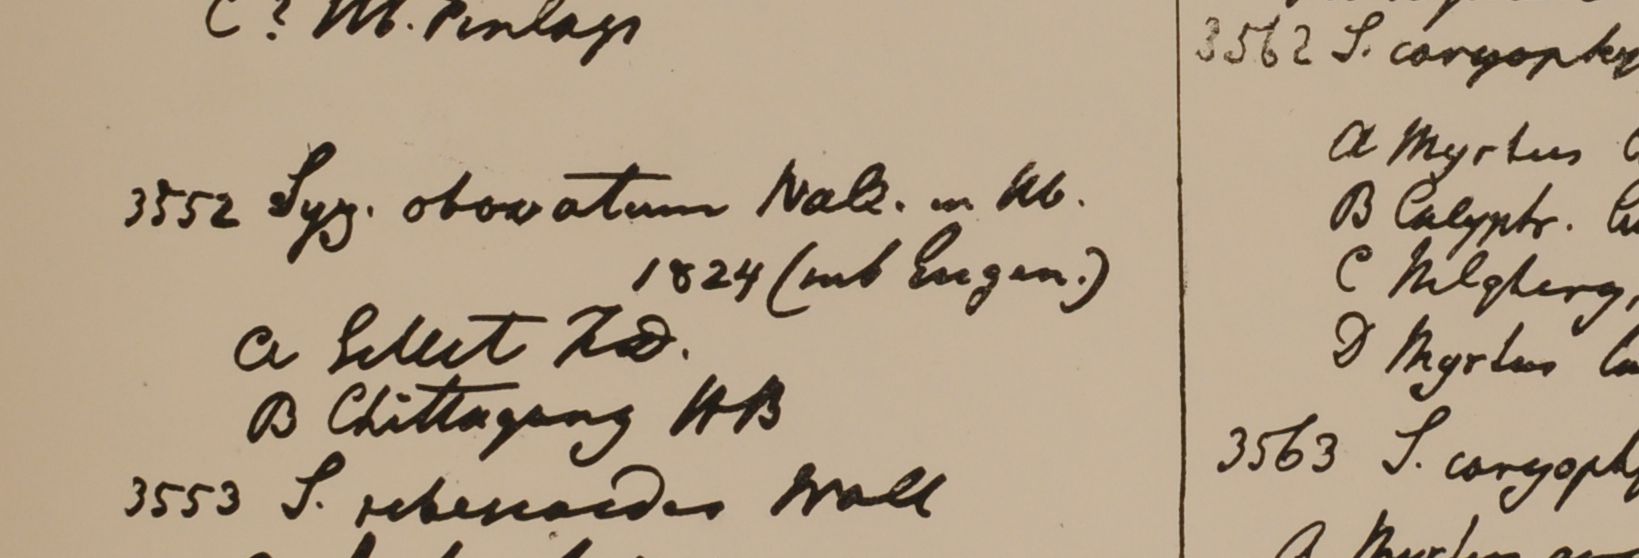 C? M. Finlays
3552 Syz. obovatum Wall. in Hb.
1824 (sub Eugen.)
a Sillet
B Chittagong HB
3553 S. Wall
3562 S. caryophy
a Myrtus
B Calyptr.
C Nilgherry,
D Myrtus
3563 S. caryoph
a Myrtus